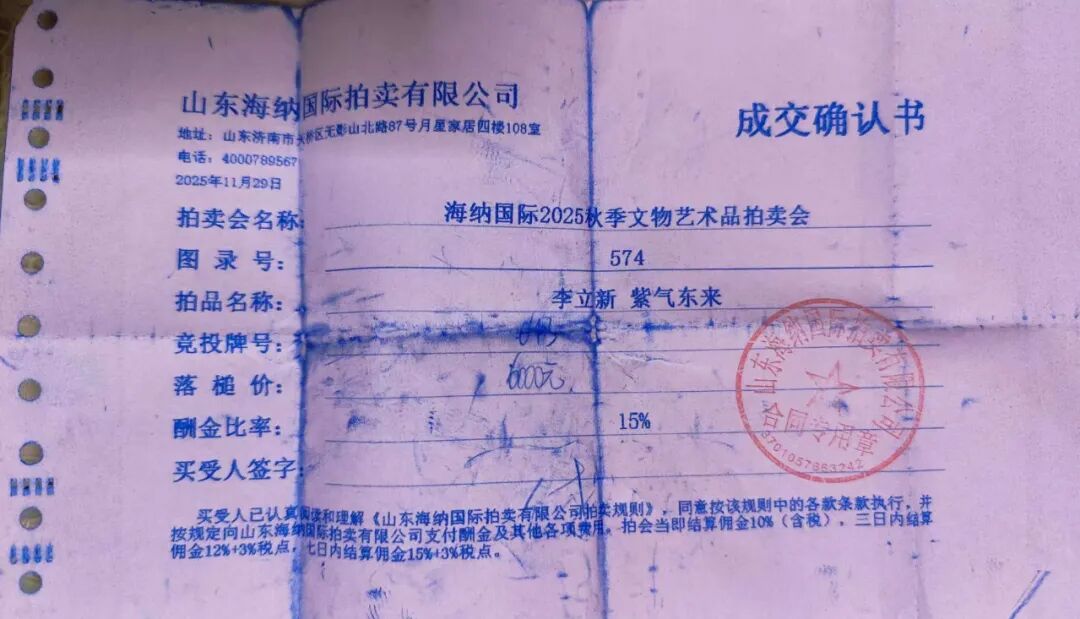 山东海纳国际拍卖有限公司
成交确认书
地址：山东济南市天桥区无影山北路87号月星家居四楼108室
电话：4000789567
2025年11月29日
拍卖会名称： 海纳国际2025秋季文物艺术品拍卖会
图录号： 574
拍品名称： 李立新 紫气东来
竞投牌号：
落槌价： 6000元
酬金比率： 15%
买受人签字：
山东海纳国际拍卖有限公司
合同专用章
3701057663242
买受人已认真阅读和理解《山东海纳国际拍卖有限公司拍卖规则》，同意按该规则中的各款条款执行，并
按规定向山东海纳国际拍卖有限公司支付酬金及其他各项费用。拍会当即结算佣金10%（含税），三日内结算
佣金12%+3%税点，七日内结算佣金15%+3%税点。